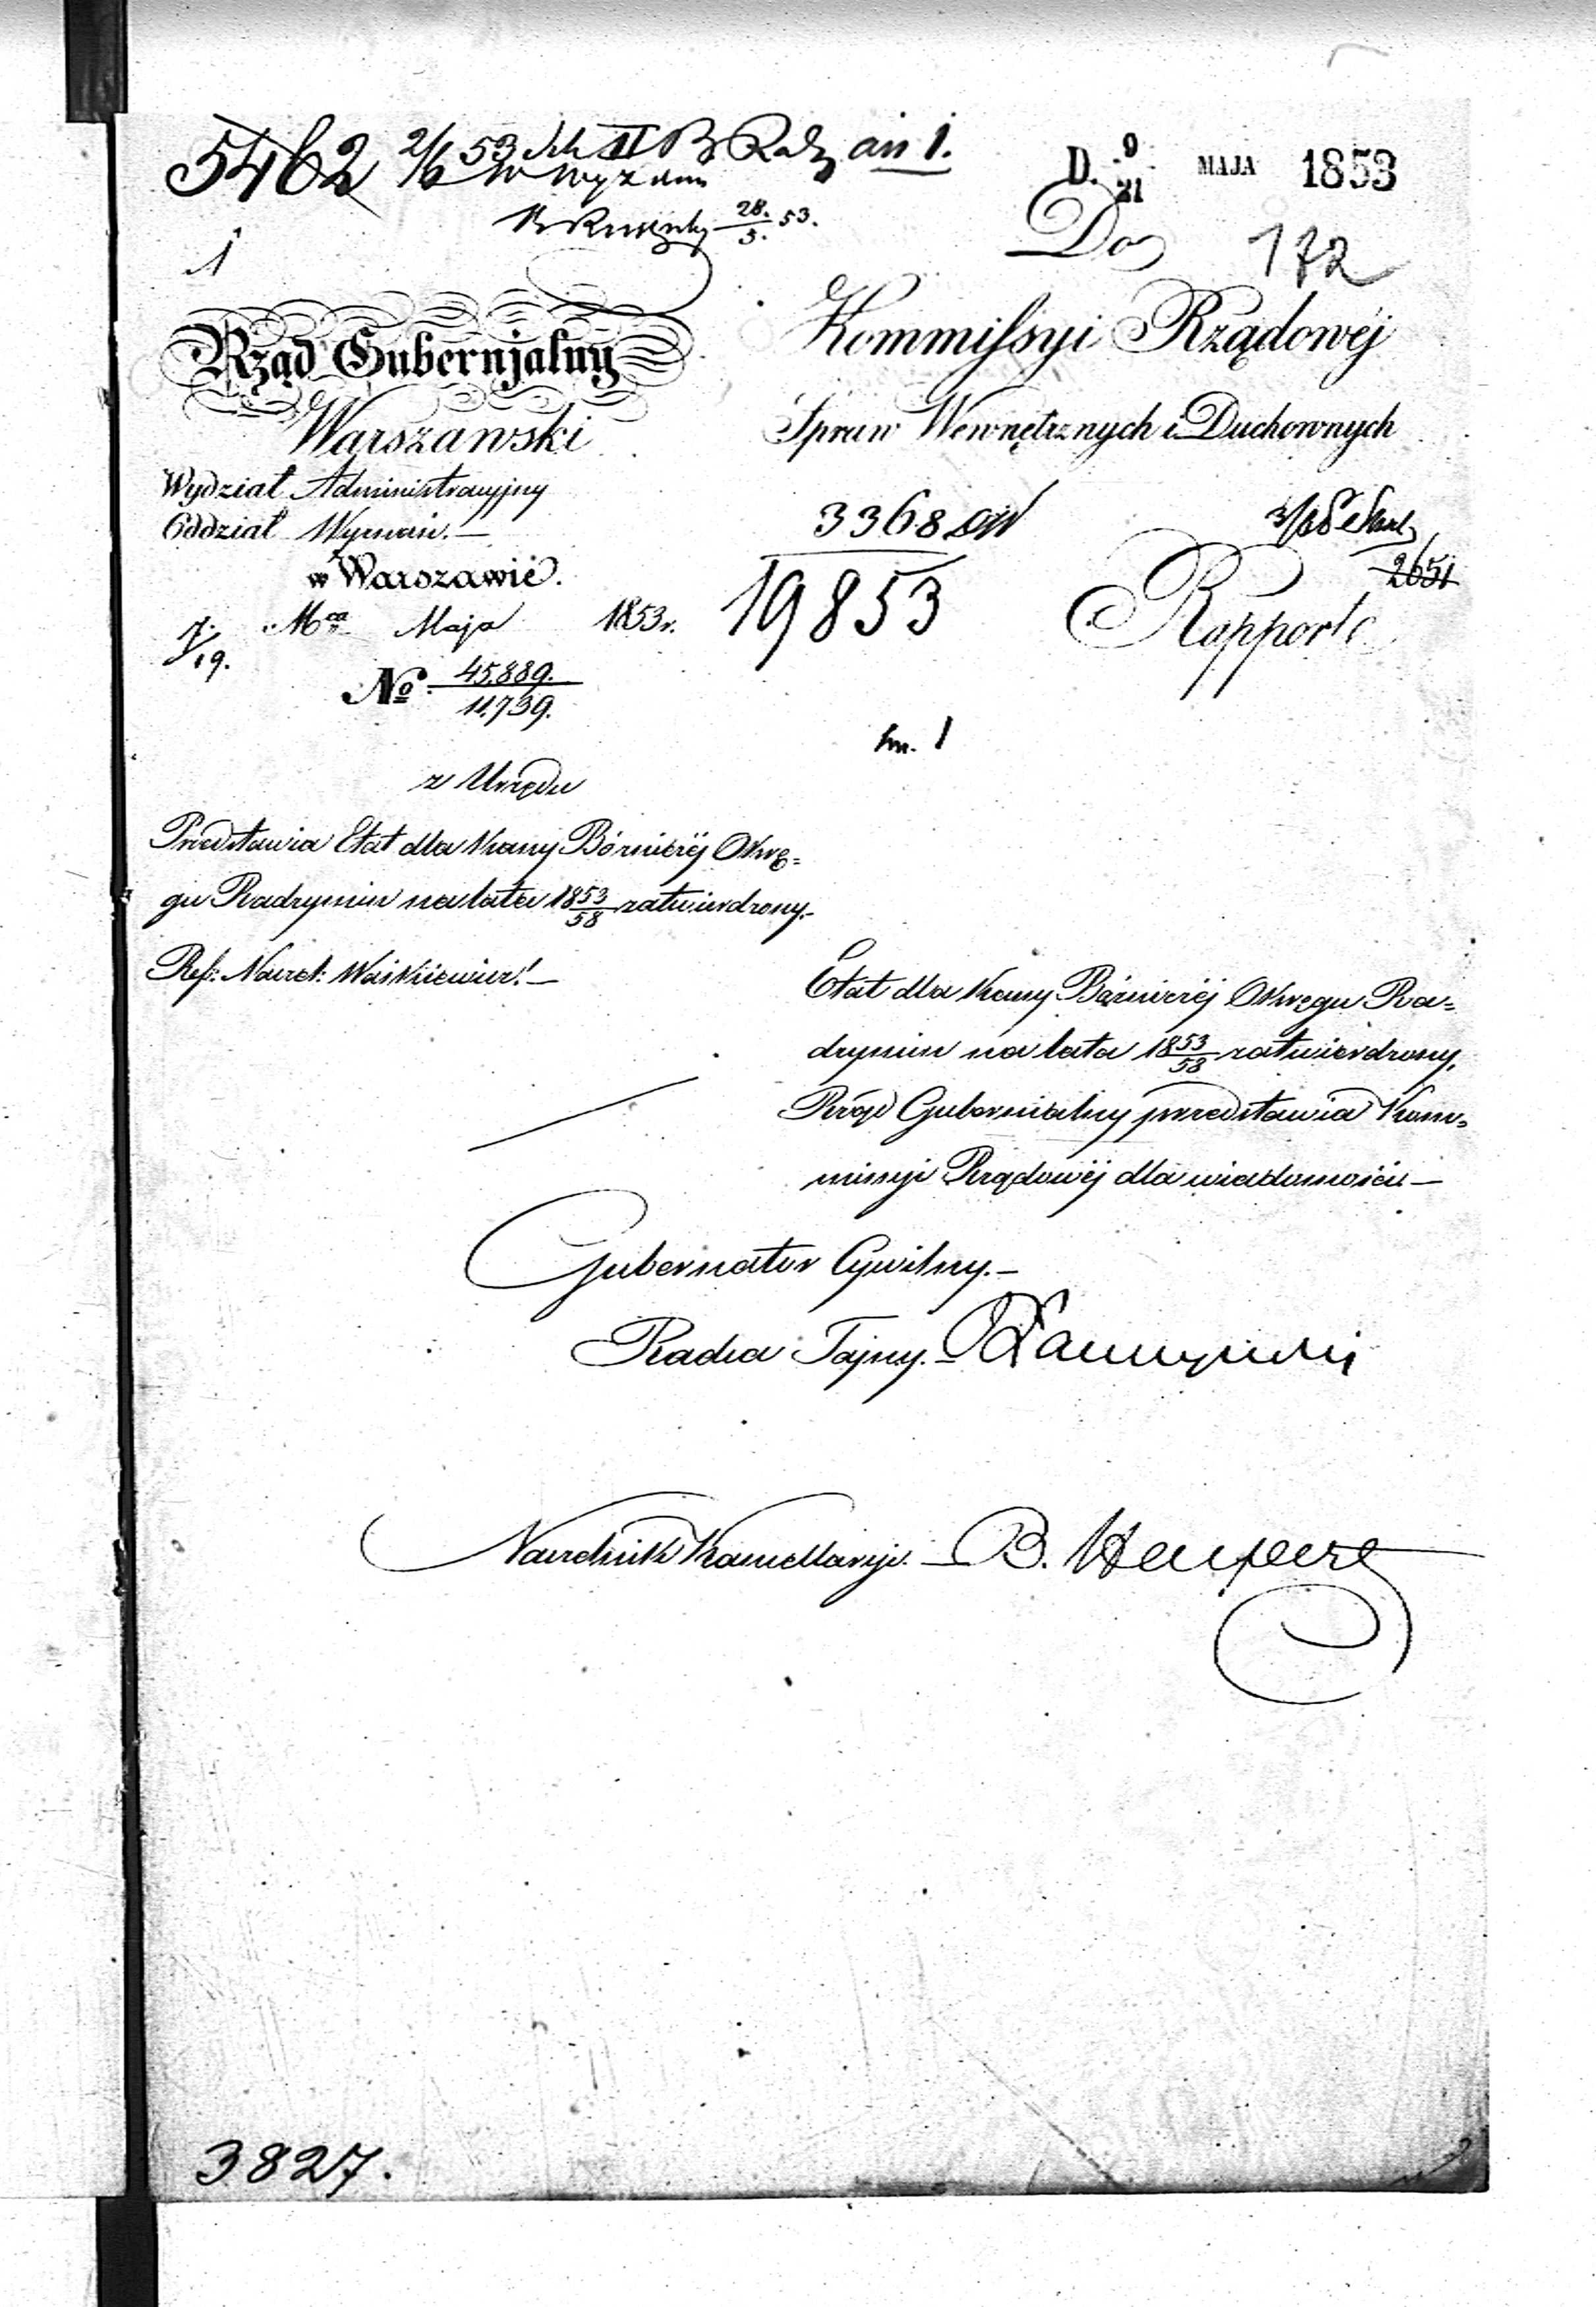 5462 2/6 53 II B Radz an 1.
W Wyznan
28./5. 53.
D. 9/21 MAJA 1853
1
Do 172
Rząd Gubernjalny
Warszawski
Wydział Administracyjny
Oddział Wyznań.—
w Warszawie.
7./19. Mca Maja 1853 r.
No. 45,889./11,739.
Kommissyi Rządowéj
Spraw Wewnętrznych i Duchownych
3368
19853
2651
Rapport
hn. 1
z Urzędu
Przedstawia Etat dla Kassy Bóżniczéj Okrę=
gu Radzymin na lata 1853/58 zatwierdzony.—
Ref: Naczel: Waśkiewicz.—
Etat dla Kassy Bóżniczéj Okręgu Ra=
dzymin na lata 1853/58 zatwierdzony,
Rząd Gubernialny przedstawia Kom=
missyi Rządowéj dla wiadomości—
Gubernator Cywilny.—
Radca Tajny.—
Naczelnik Kancellaryi.— B.
3827.